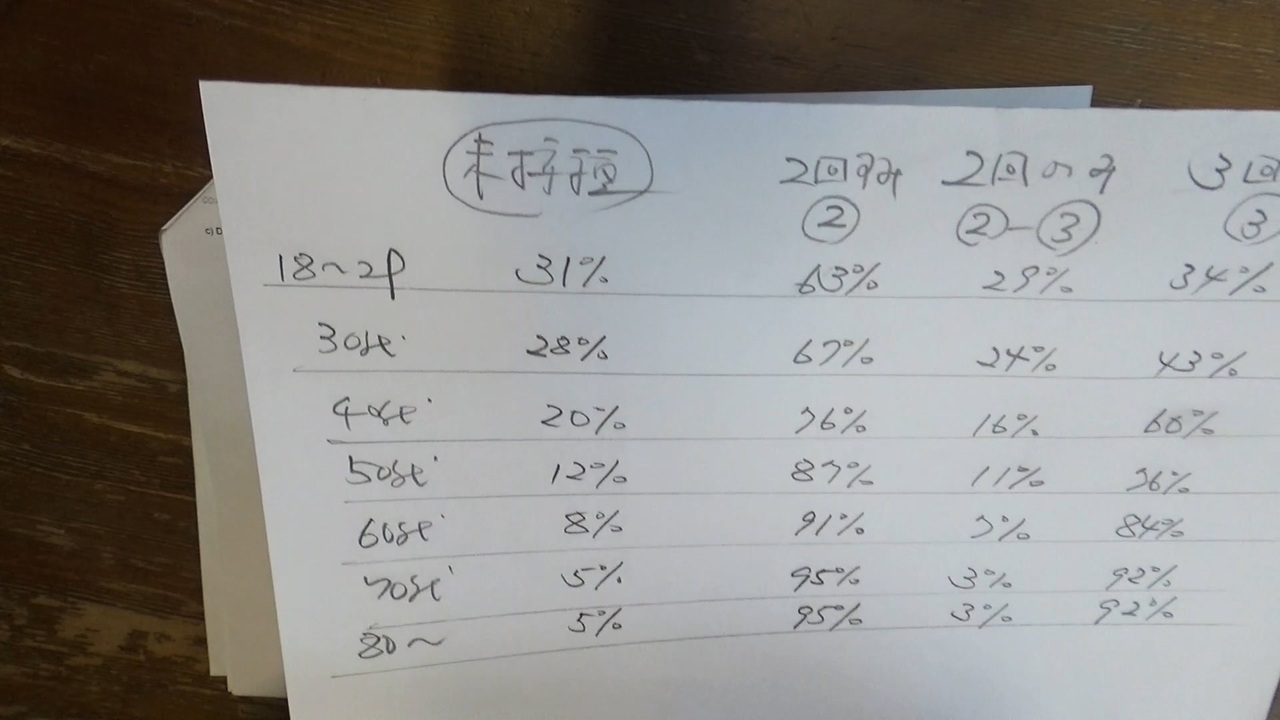 未接種 2回済み 2回のみ 3回
② ②-③ ③
18~29 31% 63% 29% 34%
30se 28% 67% 24% 43%
40se 20% 76% 16% 60%
50se 12% 87% 11% 76%
60se 8% 91% 7% 84%
70se 5% 95% 3% 92%
80~ 5% 95% 3% 92%